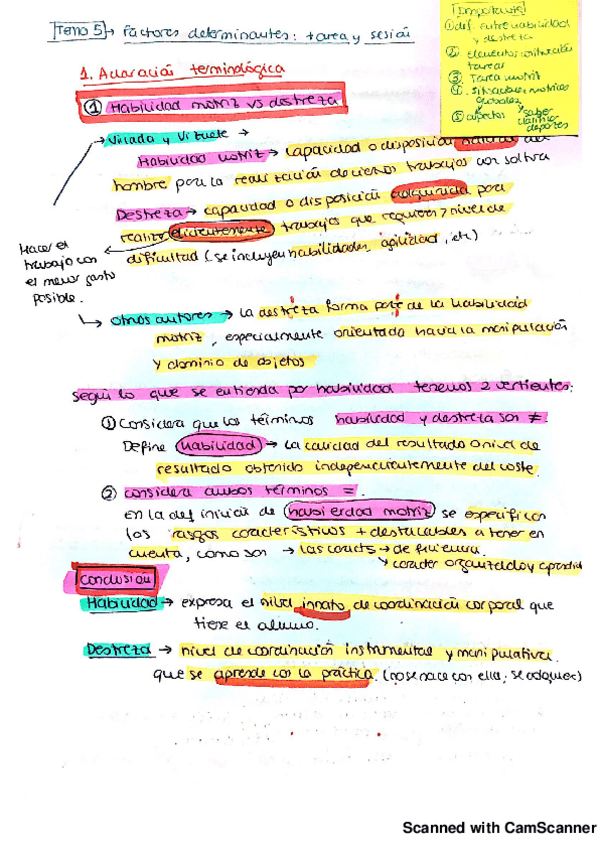 Tema 5 → Factores determinantes: tarea y sesión
Importante
① dif. entre habilidad
y destreza
② elementos
tareas
③ Tarea motriz
④ Situaciones motrices
globales
⑤ aspectos → saber
clasificar
deportes
1. Aclaración terminológica
① Habilidad motriz vs destreza
→ Virlada y Vizuete →
Habilidad motriz → capacidad o disposición natural del
hombre para la realización de ciertos trabajos con soltura
Destreza → capacidad o disposición adquirida para
realizar eficientemente trabajos que requieren > nivel de
dificultad (se incluyen habilidades, agilidad, etc)
Hacer el
trabajo con
el menor gasto
posible.
↳ otros autores → la destreza forma parte de la habilidad
motriz, especialmente orientada hacia la manipulación
y dominio de objetos
según lo que se entienda por habilidad tenemos 2 vertientes:
① Considera que los términos habilidad y destreza son ≠.
Define habilidad → la calidad del resultado o nivel de
resultado obtenido independientemente del coste.
② considera ambos términos =.
en la def inicial de habilidad motriz se especifican
los rasgos característicos + destacables a tener en
cuenta, como son → las caracts → de eficiencia.
↘ carácter organizado y aprendido
Conclusión
Habilidad → expresa el nivel innato de coordinación corporal que
tiene el alumno.
Destreza → nivel de coordinación instrumental y manipulativa
que se aprende con la práctica. (no se nace con ella; se adquiere)
Scanned with CamScanner